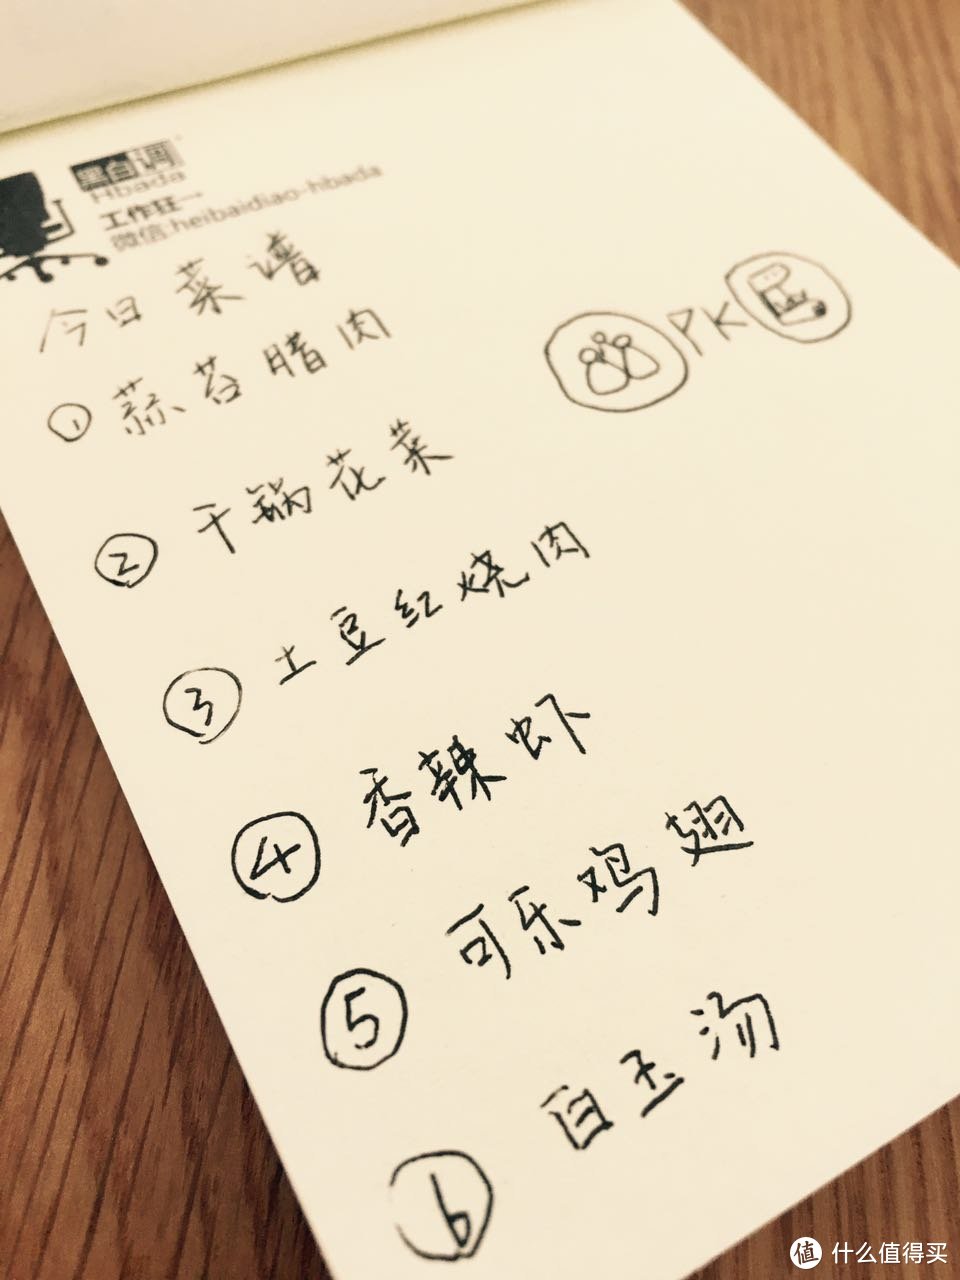 黑白调
Hbada
工作狂一
微信:heibaidiao-hbada
今日菜谱
① 蒜苔腊肉
PK
② 干锅花菜
③ 土豆红烧肉
④ 香辣虾
⑤ 可乐鸡翅
⑥ 白玉汤
值 什么值得买